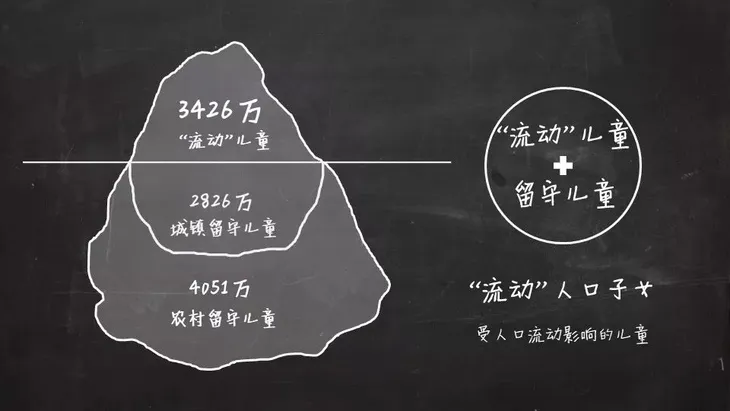 3426万
“流动”儿童
2826万
城镇留守儿童
4051万
农村留守儿童
“流动”儿童
+
留守儿童
“流动”人口子女
受人口流动影响的儿童